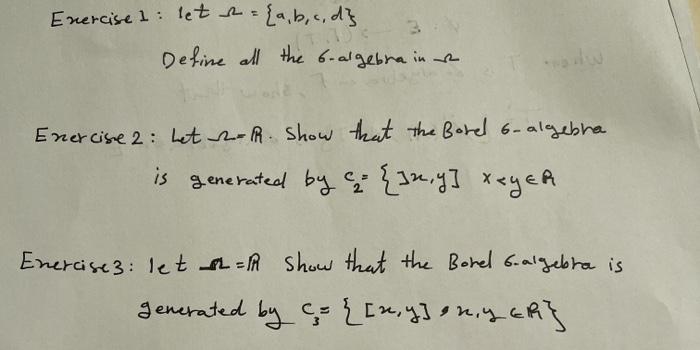 Exercise 1: let Ω = {a,b,c,d}
Define all the σ-algebra in Ω
Exercise 2: Let Ω=ℝ. Show that the Borel σ-algebra
is generated by C₂= {]x,y] x<y∈ℝ
Exercise 3: let Ω=ℝ Show that the Borel σ-algebra is
generated by C₃= {[x,y], x,y∈ℝ}